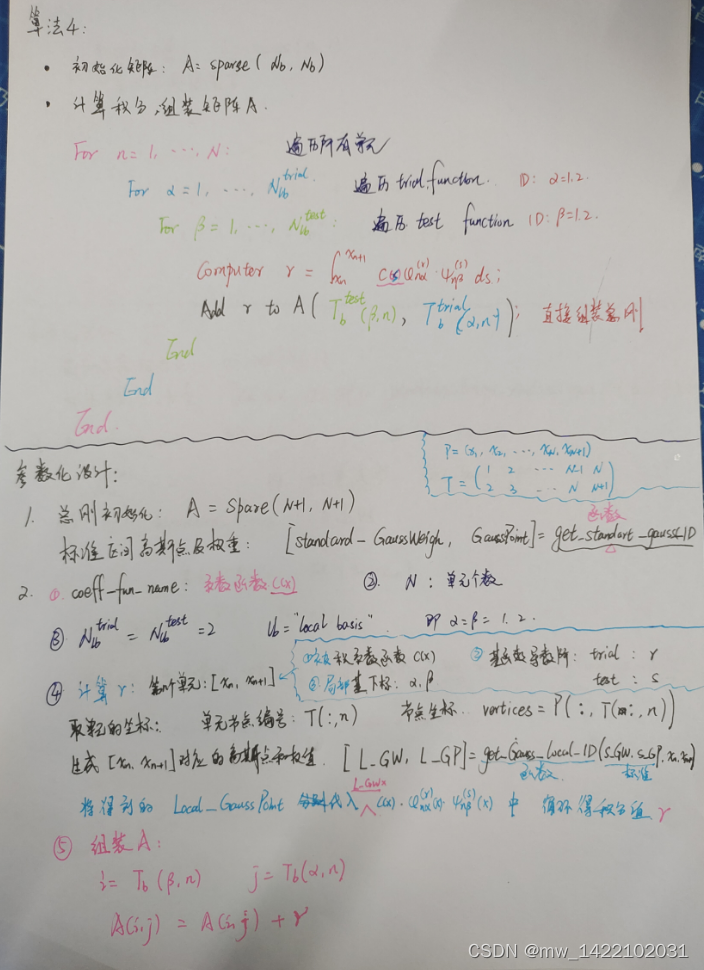 算法4:
• 初始化矩阵: A = sparse(Nb, Nb)
• 计算积分,组装矩阵A.
For n = 1, ⋯, N: 遍历所有单元
For α = 1, ⋯, Nlb^trial. 遍历 trial function. ID: α=1.2.
For β = 1, ⋯, Nlb^test: 遍历 test function ID: β=1.2.
Computer r = ∫_{xn}^{xn+1} C(x) φnα^(r) · ψnβ^(s) ds;
Add r to A( Tb^test(β,n), Tb^trial(α,n) ); 直接组装总刚
End
End
End.
P = (x1, x2, ⋯, xN, xN+1)
T = ( 1 2 ⋯ N-1 N
2 3 ⋯ N N+1 )
参数化设计:
1. 总刚初始化: A = spare(N+1, N+1)
函数
标准区间高斯点及权重: [standard-GaussWeigh, GaussPoint] = get_standart_gauss_1D
2. ① coeff-fun-name: 系数函数C(x) ② N: 单元个数
③ Nlb^trial = Nlb^test = 2 lb = "local basis" 即 α=β=1.2.
①被积系数函数 C(x) ②基函数导数阶: trial : r
③局部基下标: α,β test : s
④ 计算r: 第n个单元: [xn, xn+1]
单元节点编号: T(:,n) 节点坐标. vertices = P(:, T(:,n))
生成[xn, xn+1]对应的高斯点和权值. [L_GW, L_GP] = get_Gauss_Local_1D(S_GW, S_GP, xn, xn+1)
函数 标准
L-GW×
将得到的 Local_GaussPoint 代入 C(x)·φnα^(r)(x)·ψnβ^(s)(x) 中 循环得积分值 r
⑤ 组装A:
i = Tb(β,n) j = Tb(α,n)
A(i,j) = A(i,j) + r
CSDN @mw_1422102031